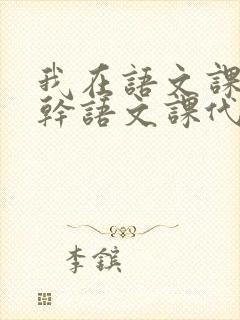 我在語文課
幹語文課代
李鑌